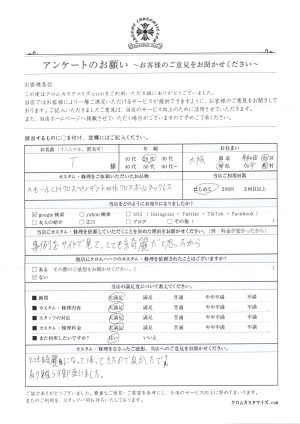 アンケートのお願い ～お客様のご意見をお聞かせください～
お客様各位
この度はクロムカスタマイズ.comをご利用いただき誠にありがとうございました。
当店ではお客様により一層ご満足いただけるサービスが提供できますように、お客様のご意見をお聞きしております。ご記入いただきましたご意見は、当店のサービス向上のために活用させていただきます。
また、当店ホームページへ掲載させていただく場合がございますので予めご了承ください。
該当するものに○を付け、空欄にはご記入ください。
お名前（イニシャル、匿名可） 年齢 お住まい
T
10代 20代 30代～
40代～ 50代～ 60代～
大阪 都 道 府 県
カスタム・修理をご依頼いただいたお品物 当店のご利用回数
スモールCHクロスペンダントwithクロスボールネックレス
はじめて 2回目 3回目以上
当店をどのようにお知りになりましたか？
google検索 yahoo検索 SNS（Instagram・Twitter・TikTok・Facebook）
友人の紹介 広告 ブログ その他（ ）
カスタム・修理を依頼していただくことを決めた理由をお聞かせください。（例 料金が安かったから）
事例をサイトで見て、とても綺麗だと思ったから
他店にクロムハーツのカスタム・修理を依頼されたことはございますか？
ある その際のご感想をお聞かせください。（ ）
ない
当店の満足度について教えてください。
納期 大満足 満足 普通 やや不満 不満
カスタム・修理内容 大満足 満足 普通 やや不満 不満
スタッフの対応 大満足 満足 普通 やや不満 不満
カスタム・修理料金 大満足 満足 普通 やや不満 不満
また利用したいですか？ はい いいえ
カスタム・修理をなさったご感想、当店へのご意見をお聞かせください。
とても綺麗になって帰ってきたので良かったです。
有り難う御座いました。
ご協力ありがとうございました。貴重なご意見・ご要望を参考にし、今後のサービスの向上に努めてまいります。
またのご利用を、スタッフ一同お待ちいたしております。
クロムカスタマイズ.com